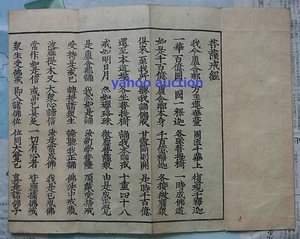 菩薩戒經
我今盧舍那 方坐蓮華臺 周匝千華上 復現千釋迦
一華百億國 一國一釋迦 各坐菩提樹 一時成佛道
如是千百億 盧舍那本身 千百億釋迦 各接微塵眾
俱來至我所 聽我誦佛戒 甘露門則開 是時千百億
還至本道場 各坐菩提樹 誦我本師戒 十重四十八
戒如明日月 亦如瓔珞珠 微塵菩薩眾 由是成正覺
是盧舍那誦 我亦如是誦 汝新學菩薩 頂戴受持戒
受持是戒已 轉授諸眾生 諦聽我正誦 佛法中戒藏
波羅提木叉 大眾心諦信 汝是當成佛 我是已成佛
常作如是信 戒品已具足 一切有心者 皆應攝佛戒
眾生受佛戒 即入諸佛位 位同大覺已 真是諸佛子
yahoo auction